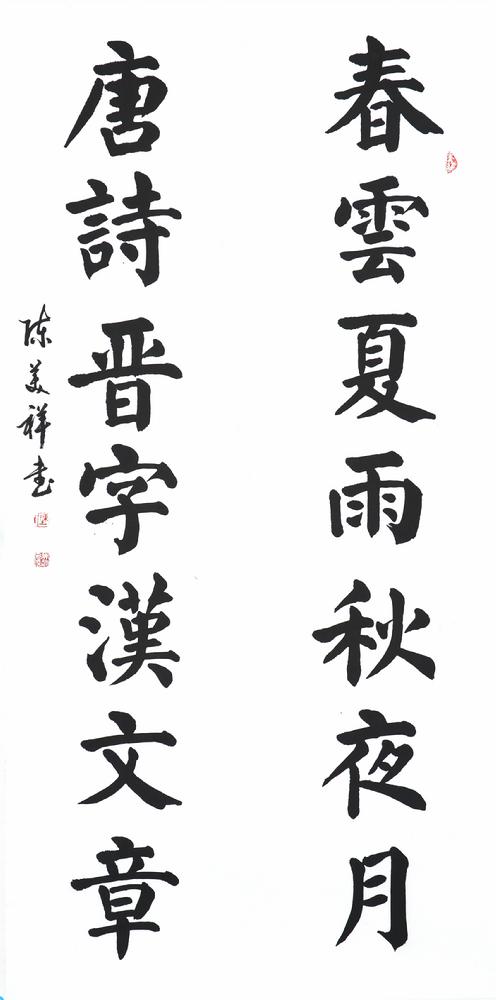 春雲夏雨秋夜月
唐詩晋字漢文章
陈美祥书